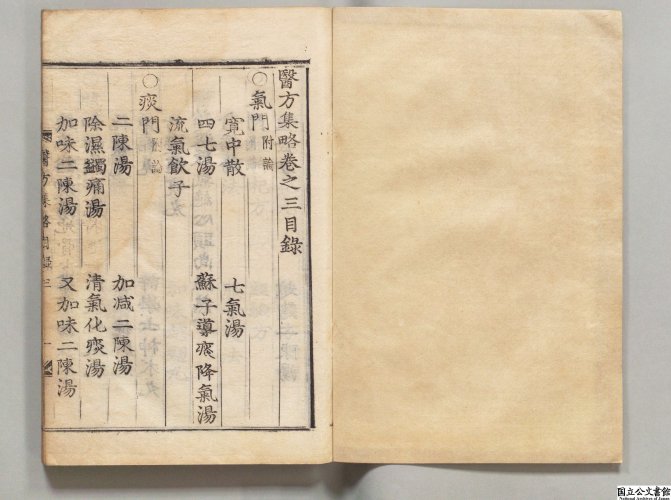 醫方集略卷之三目錄
○氣門附論
寬中散 七氣湯
四七湯 蘇子導痰降氣湯
流氣飲子
○痰門附論
二陳湯 加减二陳湯
除濕蠲痛湯 清氣化痰湯
加味二陳湯 又加味二陳湯
醫方集略目錄三 一
国立公文書館
National Archives of Japan